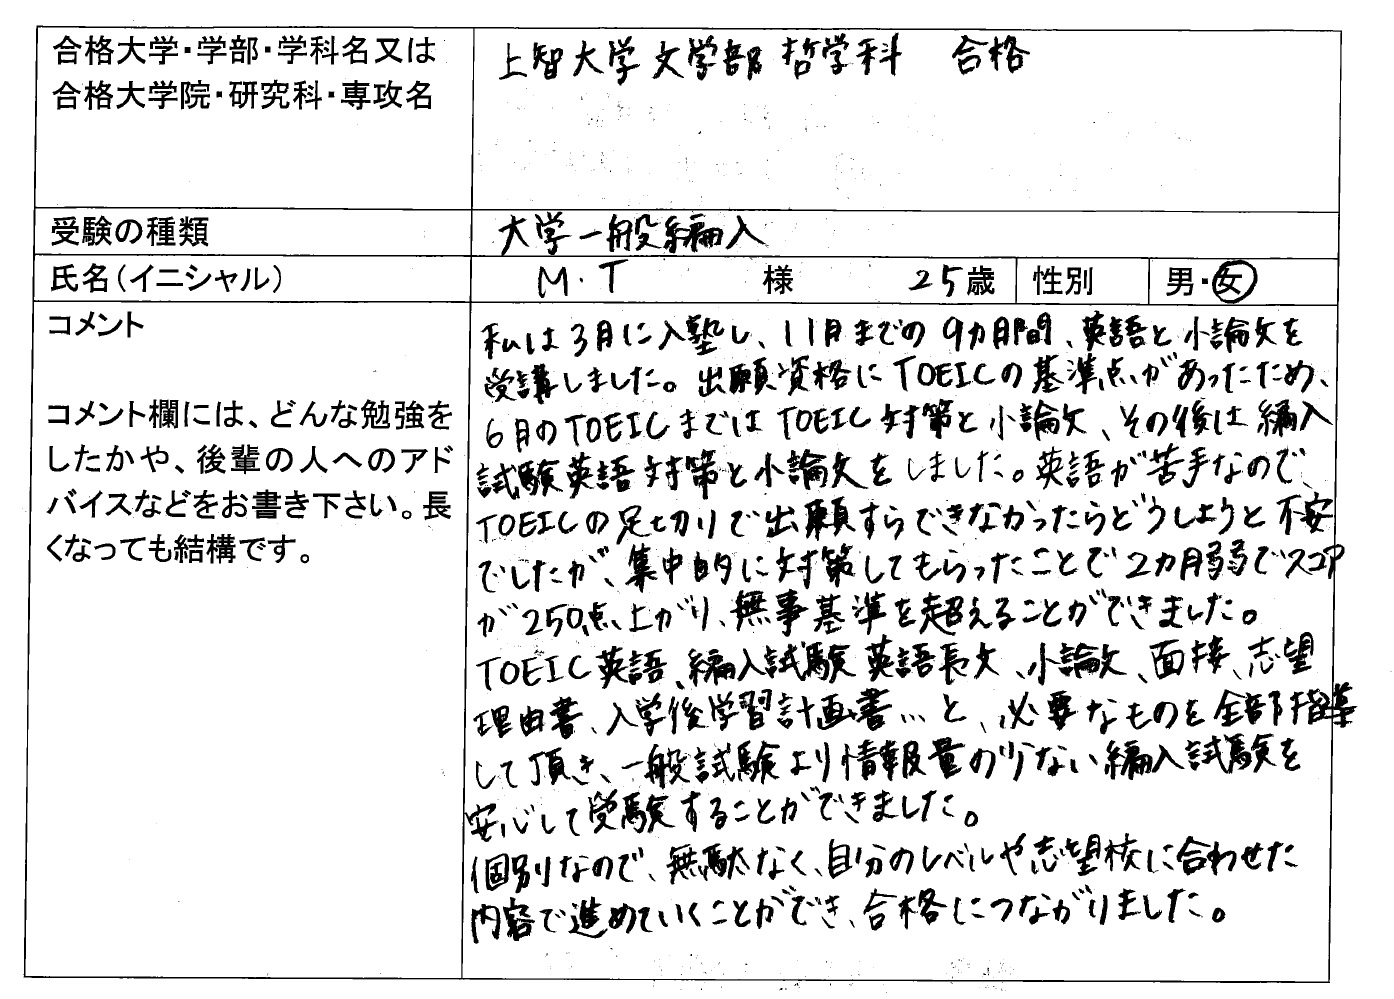 合格大学・学部・学科名又は
合格大学院・研究科・専攻名
上智大学 文学部 哲学科 合格
受験の種類
大学一般編入
氏名(イニシャル)
M.T 様 25歳 性別 男・女
コメント
コメント欄には、どんな勉強を
したかや、後輩の人へのアド
バイスなどをお書き下さい。長
くなっても結構です。
私は3月に入塾し、11月までの9カ月間、英語と小論文を
受講しました。出願資格にTOEICの基準点があったため、
6月のTOEICまではTOEIC対策と小論文、その後は編入
試験英語対策と小論文をしました。英語が苦手なので、
TOEICの足切りで出願すらできなかったらどうしようと不安
でしたが、集中的に対策してもらったことで2カ月弱でスコア
が250点上がり、無事基準を超えることができました。
TOEIC英語、編入試験英語長文、小論文、面接、志望
理由書、入学後学習計画書…と、必要なものを全部指導
して頂き、一般試験より情報量の少ない編入試験を
安心して受験することができました。
個別なので、無駄なく、自分のレベルや志望校に合わせた
内容で進めていくことができ、合格につながりました。